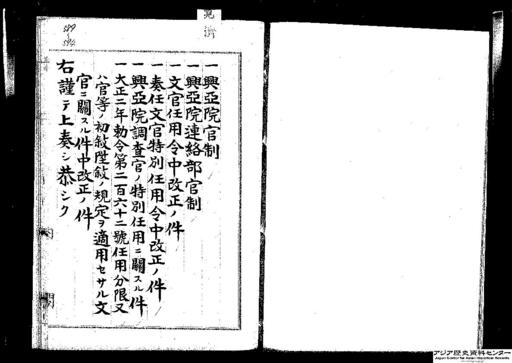 一興亞院官制
一興亞院連絡部官制
一文官任用令中改正ノ件
一奏任文官特別任用令中改正ノ件
一興亞院調査官ノ特別任用ニ關スル件
一大正二年勅令第二百六十二號任用分限又
ハ官等ノ初敍陞敍ノ規定ヲ適用セサル文
官ニ關スル件中改正ノ件
右謹テ上奏シ恭シク
内閣
アジア歴史資料センター
Japan Center for Asian Historical Records